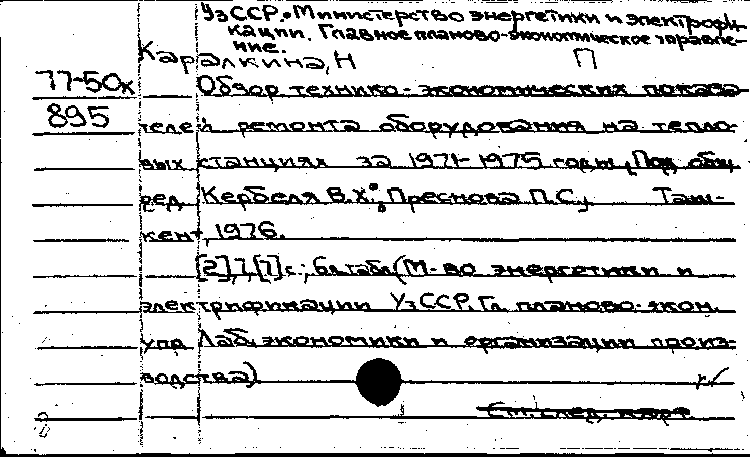 УзССР. Министерство энергетики и электрофи-
кации. Главное планово-экономическое управле-
ние.
Каралкина, Н П
77-50к Обзор технико-экономических показа-
895 телей ремонта оборудования на тепло-
вых станциях за 1971-1975 годы. Под общ.
ред. Кербеля В.Х., Преснова П.С., Таш-
кент, 1976.
[2], 7, [7] с.; 6 л. табл (М-во энергетики и
электрификации УзССР. Гл. планово-экон.
упр Лаб. экономики и организации произ-
водства)
См. след. карт.